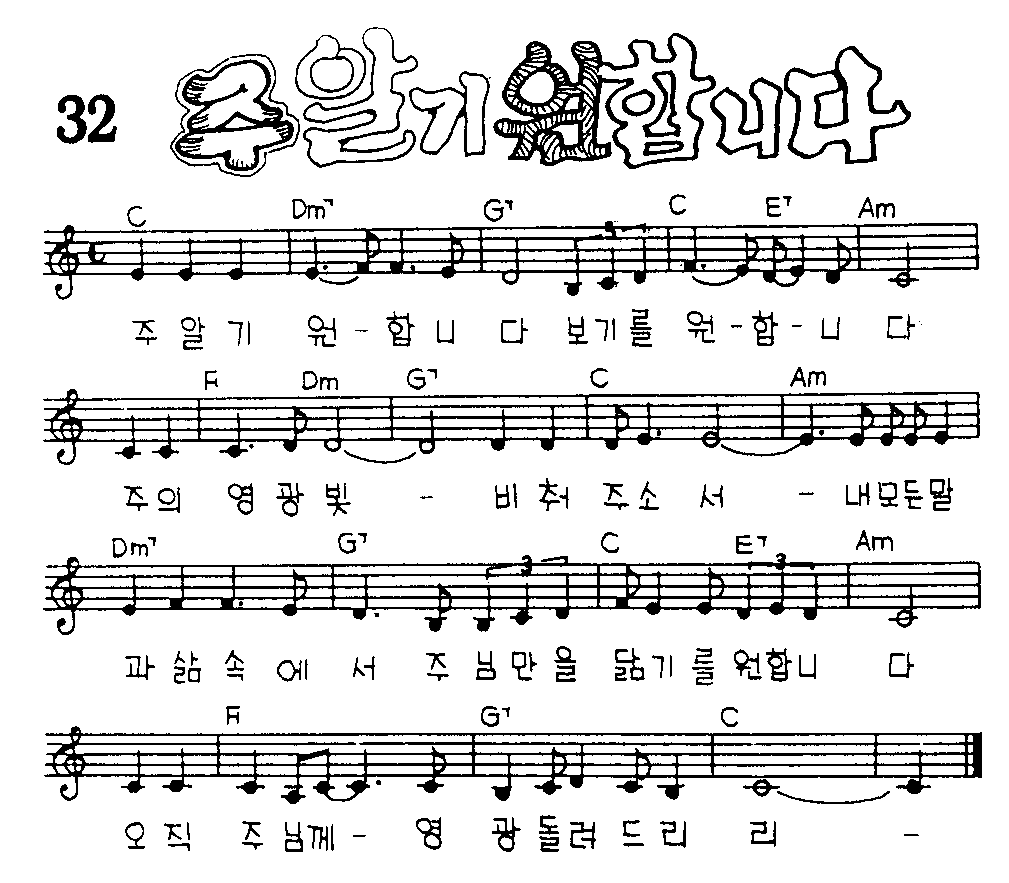 32 주 알기 원합니다
C Dm7 G7 3 C E7 Am
주 알 기 원 - 합 니 다 보기를 원 - 합 - 니 다
F Dm G7 C Am
주의 영 광 빛 - 비 춰 주 소 서 - 내모든말
Dm7 G7 3 C E7 3 Am
과 삶 속 에 서 주 님 만 을 닮기 를 원합니 다
F G7 C
오 직 주 님께 - 영 광 돌 려 드 리 리 -